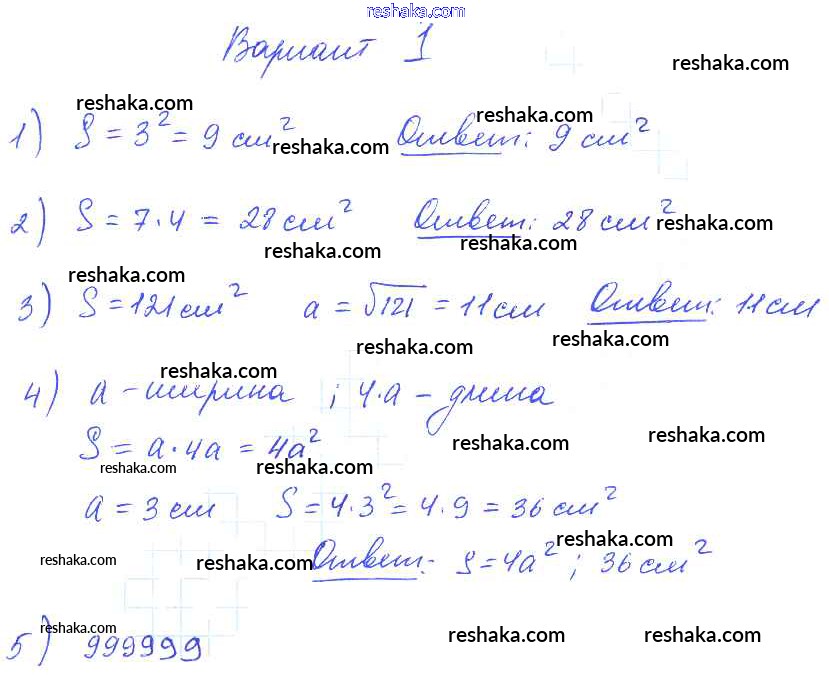 reshaka.com
Вариант 1
reshaka.com
reshaka.com
reshaka.com
1) S = 3² = 9 см² Ответ: 9 см²
reshaka.com
reshaka.com
2) S = 7·4 = 28 см² Ответ: 28 см²
reshaka.com
reshaka.com
reshaka.com
reshaka.com
3) S = 121 см² a = √121 = 11 см Ответ: 11 см
reshaka.com
reshaka.com
reshaka.com
4) a - ширина ; 4·a - длина
reshaka.com
reshaka.com
S = a·4a = 4a²
reshaka.com
reshaka.com
a = 3 см S = 4·3² = 4·9 = 36 см²
reshaka.com
reshaka.com
reshaka.com
Ответ: S = 4a² ; 36 см²
reshaka.com
reshaka.com
reshaka.com
5) 999999